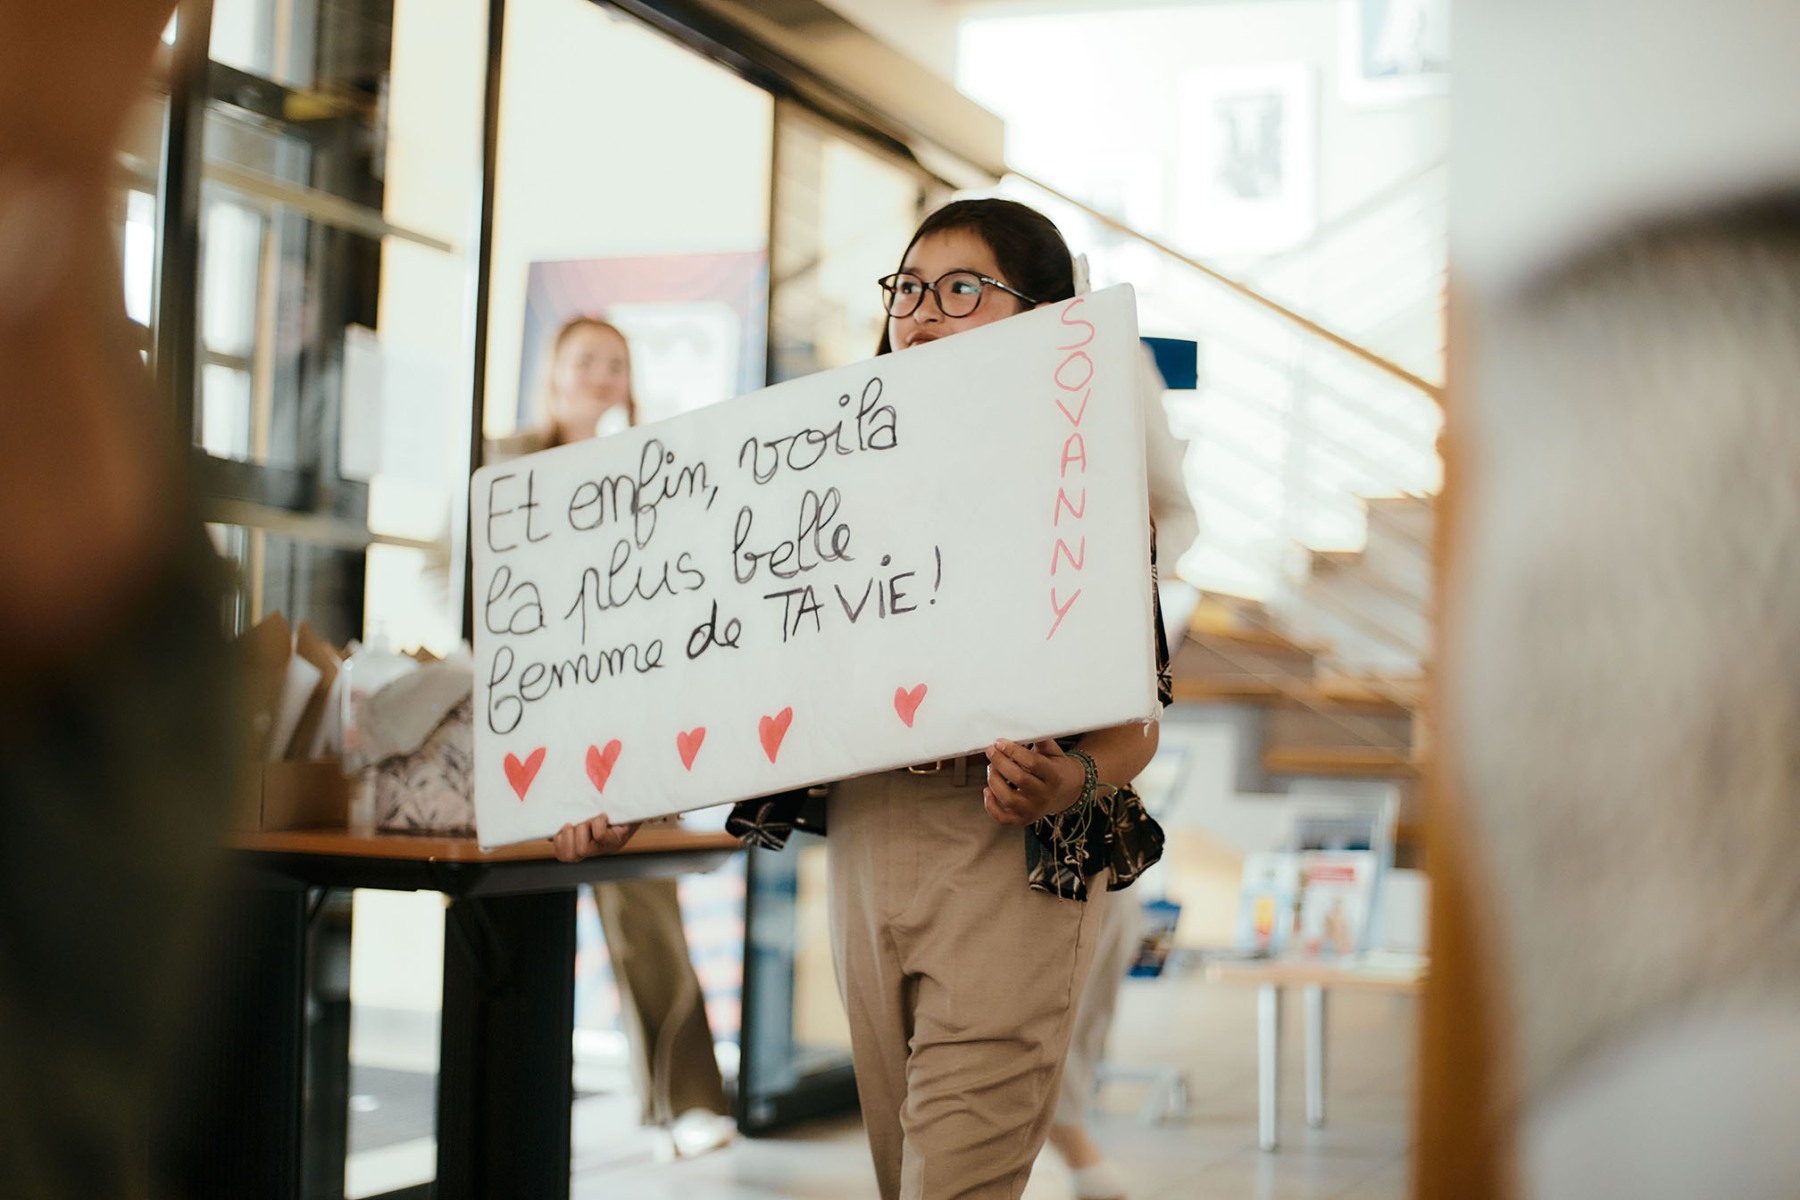 Et enfin, voila
la plus belle
femme de TA VIE!
SOVANNY